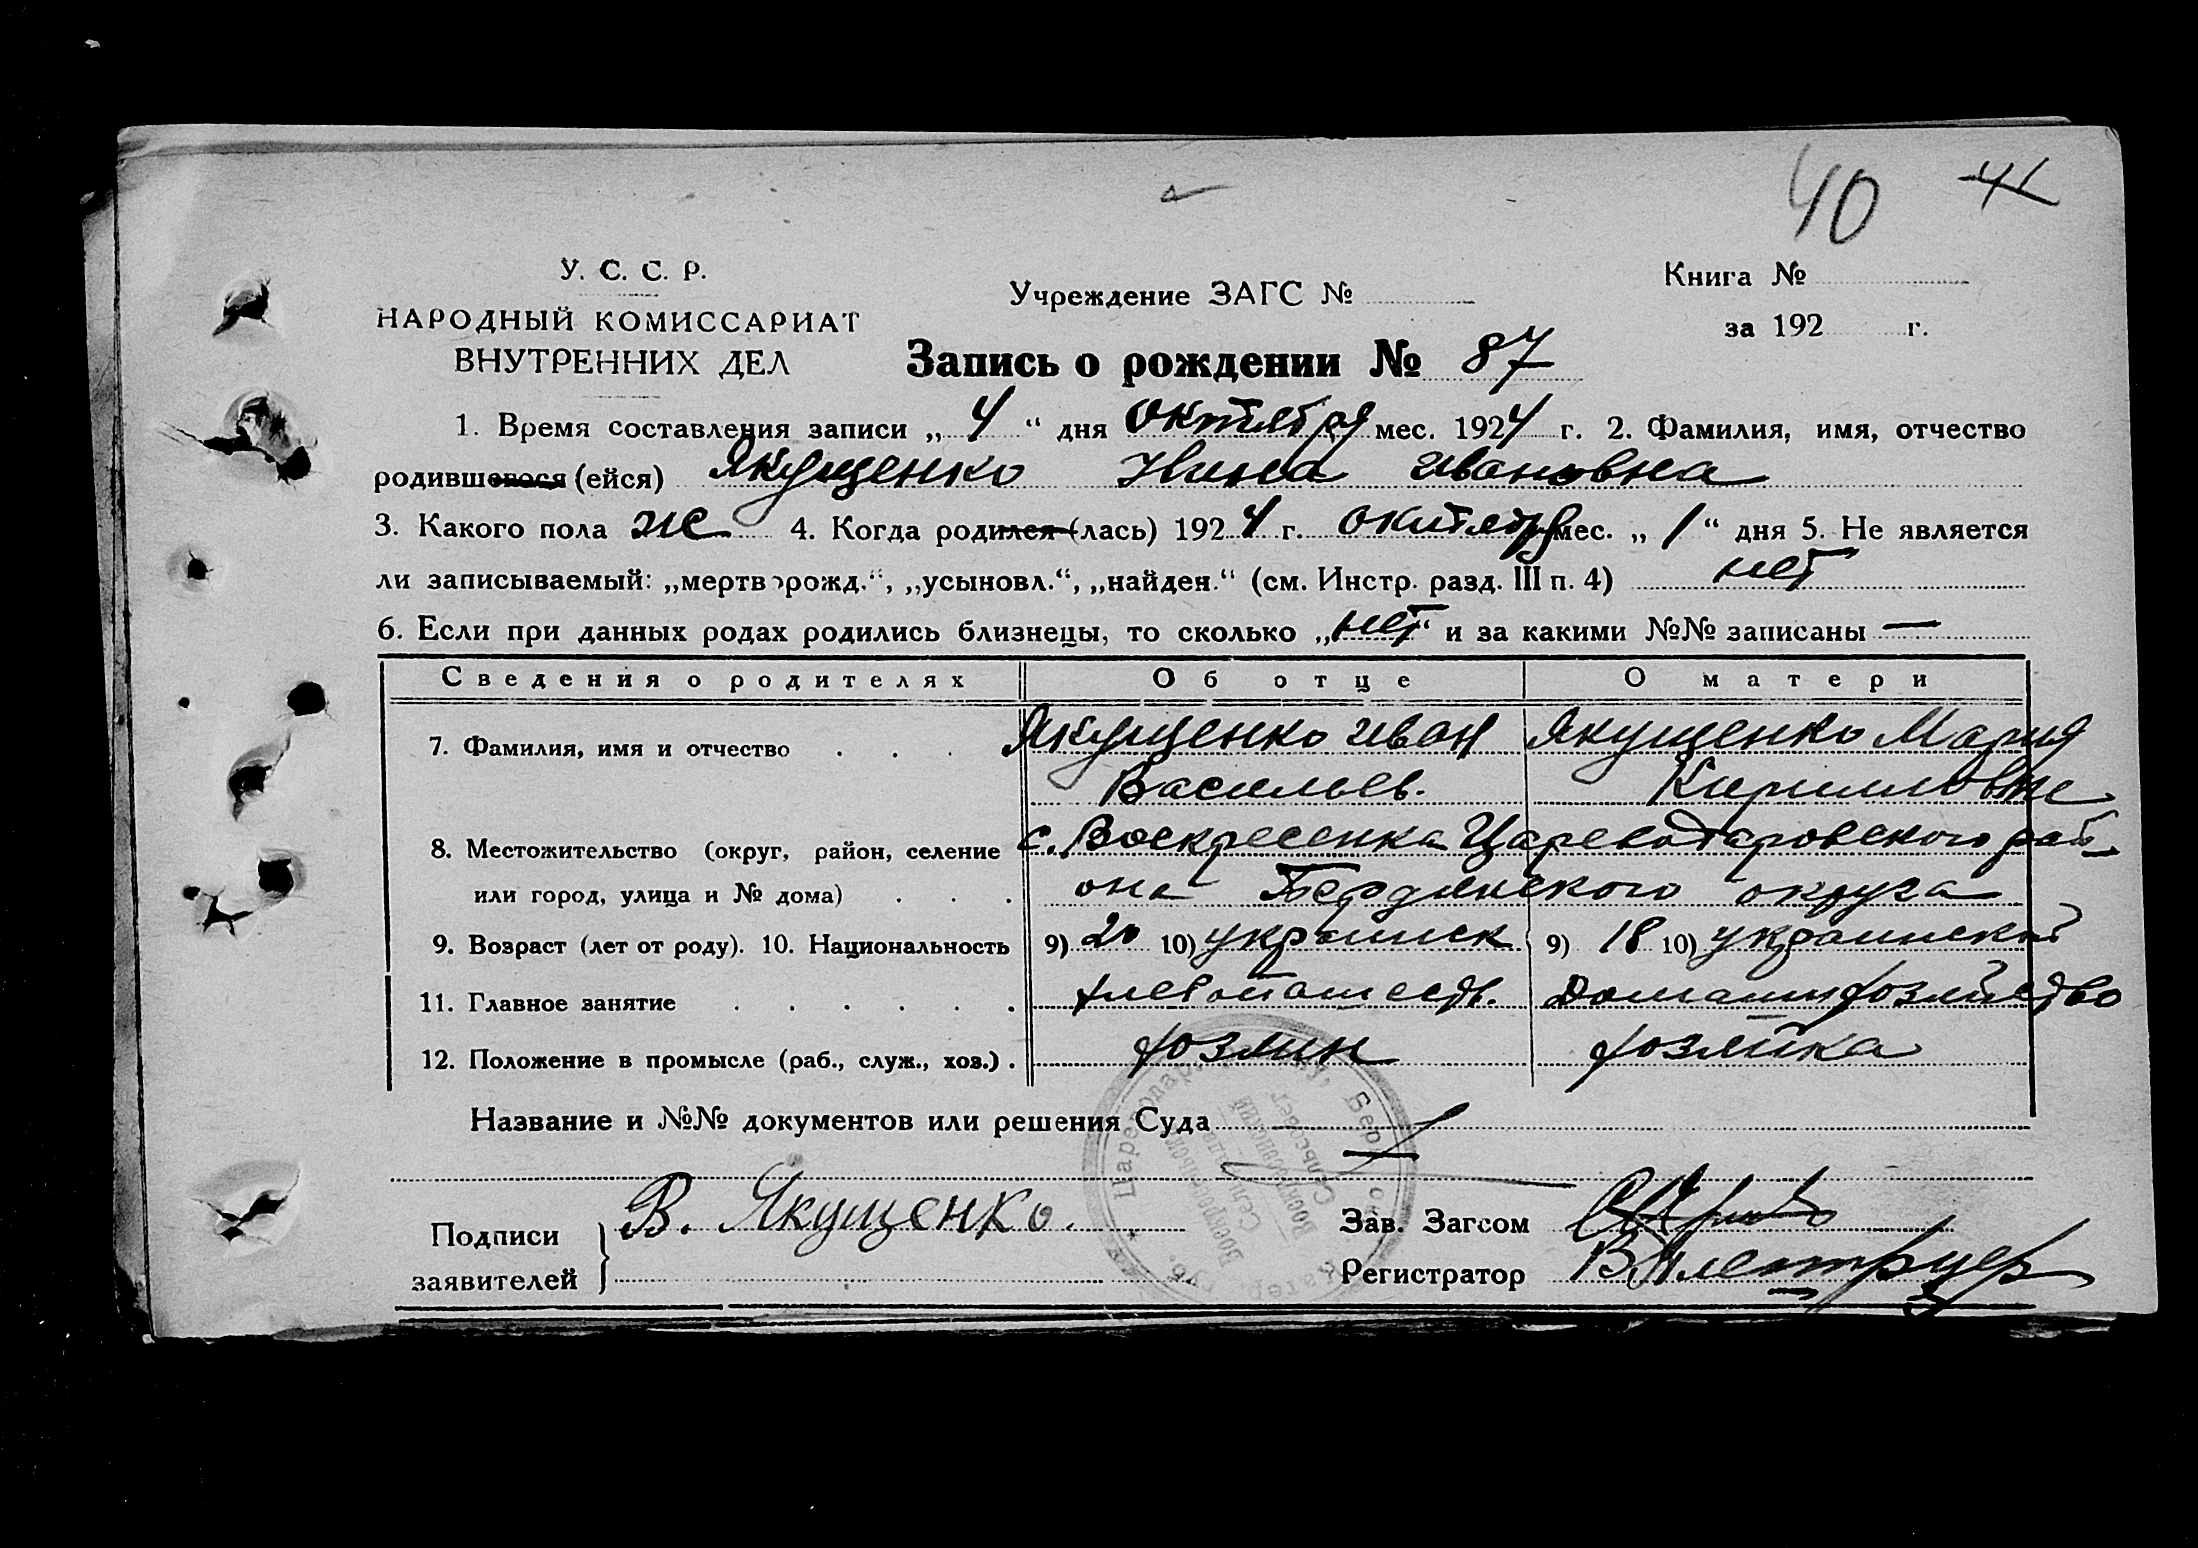 40 41
У. С. С. Р.
НАРОДНЫЙ КОМИССАРИАТ
ВНУТРЕННИХ ДЕЛ
Учреждение ЗАГС №
Книга №
за 192 г.
Запись о рождении № 87
1. Время составления записи „ 4 “ дня октября мес. 1924 г. 2. Фамилия, имя, отчество
родившегося (ейся) Якущенко Нина Ивановна
3. Какого пола ж 4. Когда родился (лась) 1924 г. октября мес. „ 1 “ дня 5. Не является
ли записываемый: „мертворожд.“, „усыновл.“, „найден.“ (см. Инстр. разд. III п. 4) нет
6. Если при данных родах родились близнецы, то сколько „нет“ и за какими №№ записаны —
Сведения о родителях Об отце О матери
7. Фамилия, имя и отчество . . . Якущенко Иван Якущенко Мария
Васильев. Кирилловне
8. Местожительство (округ, район, селение с. Воскресенка Цареводаровского рай-
или город, улица и № дома) . . . она Бердянского округа
9. Возраст (лет от роду). 10. Национальность 9) 20 10) украинск 9) 18 10) украинской
11. Главное занятие . . . . . . хлебопашеств. Домашн хозяйство
12. Положение в промысле (раб., служ., хоз.) . хозяин хозяйка
Название и №№ документов или решения Суда
Подписи
заявителей
В. Якущенко.
Зав. Загсом
Регистратор